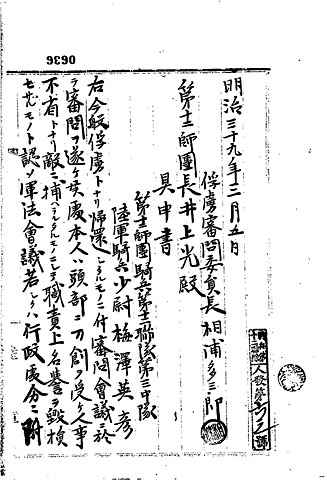 0636
明治三十九年三月五日
俘虜審問委員長相浦多三郎
第十二師團長井上光殿
具申書
第十二師團騎兵第十二聯隊第三中隊
陸軍騎兵少尉梅澤英彦
右今般俘虜トナリ帰還シタルモノニ付審問會議ニ於
テ審問ヲ遂ケ候處本人ハ頭部ニ刀創ヲ受ケ人事
不省トナリ敵ニ捕ヘラレタルモノニシテ職責上名誉ヲ毀損
セサルモノト認メ軍法會議若シクハ行政処分ニ附